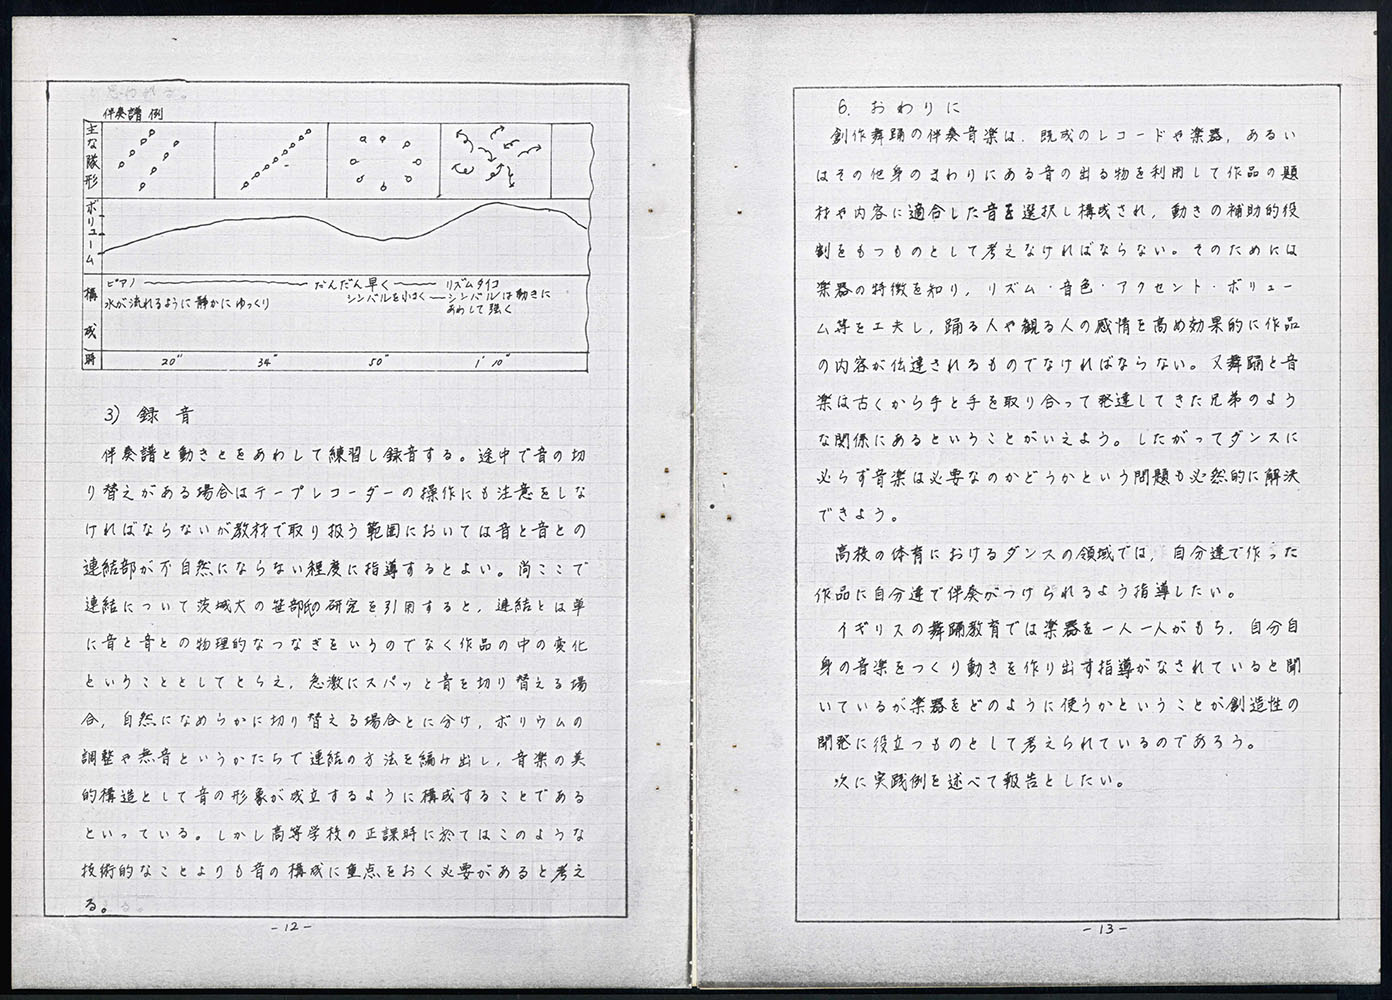 伴奏譜例
主な隊形
ボリューム
構成
ピアノ
だんだん早く
リズムタイコ
水が流れるように静かにゆっくり
シンバルを小さく
シンバルは動きに
あわして強く
時
20" 34" 50" 1' 10"
3) 録音
伴奏譜と動きとをあわして練習し録音する。途中で音の切
り替えがある場合はテープレコーダーの操作にも注意をしな
ければならないが教材で取り扱う範囲においては音と音との
連結部が不自然にならない程度に指導するとよい。尚ここで
連結について茨城大の笹部氏の研究を引用すると，連結とは単
に音と音との物理的なつなぎをいうのでなく作品の中の変化
ということとしてとらえ，急激にスパッと音を切り替える場
合，自然になめらかに切り替える場合とに分け，ボリウムの
調整や無音というかたちで連結の方法を編み出し，音楽の美
的構造として音の形象が成立するように構成することである
といっている。しかし高等学校の正課時に於てはこのような
技術的なことよりも音の構成に重点をおく必要があると考え
る。
-12-
6. おわりに
創作舞踊の伴奏音楽は，既成のレコードや楽器，あるい
はその他身のまわりにある音の出る物を利用して作品の題
材や内容に適合した音を選択し構成され，動きの補助的役
割をもつものとして考えなければならない。そのためには
楽器の特徴を知り，リズム・音色・アクセント・ボリュー
ム等を工夫し，踊る人や観る人の感情を高め効果的に作品
の内容が伝達されるものでなければならない。又舞踊と音
楽は古くから手と手を取り合って発達してきた兄弟のよう
な関係にあるということがいえよう。したがってダンスに
必らず音楽は必要なのかどうかという問題も必然的に解決
できよう。
高校の体育におけるダンスの領域では，自分達で作った
作品に自分達で伴奏がつけられるよう指導したい。
イギリスの舞踊教育では楽器を一人一人がもち，自分自
身の音楽をつくり動きを作り出す指導がなされていると聞
いているが楽器をどのように使うかということが創造性の
開発に役立つものとして考えられているのであろう。
次に実践例を述べて報告としたい。
-13-